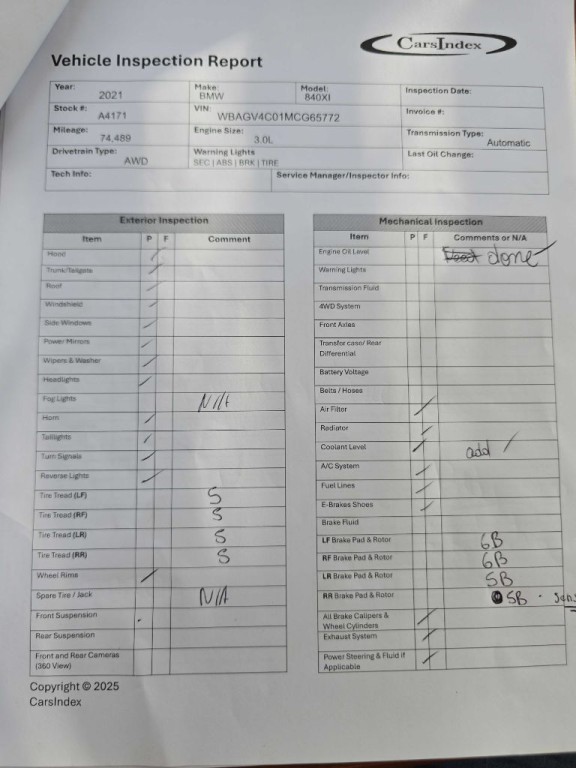 CarsIndex
Vehicle Inspection Report
Year: 2021 Make: BMW Model: 840XI Inspection Date:
Stock #: A4171 VIN: WBAGV4C01MCG65772 Invoice #:
Mileage: 74,489 Engine Size: 3.0L Transmission Type: Automatic
Drivetrain Type: AWD Warning Lights SEC | ABS | BRK | TIRE Last Oil Change:
Tech Info: Service Manager/Inspector Info:
Exterior Inspection
Item P F Comment
Hood
Trunk/Tailgate
Roof
Windshield
Side Windows
Power Mirrors
Wipers & Washer
Headlights
Fog Lights N/A
Horn
Taillights
Turn Signals
Reverse Lights
Tire Tread (LF) 5
Tire Tread (RF) 5
Tire Tread (LR) 5
Tire Tread (RR) 5
Wheel Rims
Spare Tire / Jack N/A
Front Suspension
Rear Suspension
Front and Rear Cameras
(360 View)
Mechanical Inspection
Item P F Comments or N/A
Engine Oil Level done
Warning Lights
Transmission Fluid
4WD System
Front Axles
Transfer case/ Rear
Differential
Battery Voltage
Belts / Hoses
Air Filter
Radiator
Coolant Level add
A/C System
Fuel Lines
E-Brakes Shoes
Brake Fluid
LF Brake Pad & Rotor 6B
RF Brake Pad & Rotor 6B
LR Brake Pad & Rotor 5B
RR Brake Pad & Rotor 5B
All Brake Calipers &
Wheel Cylinders
Exhaust System
Power Steering & Fluid if
Applicable
Copyright © 2025
CarsIndex